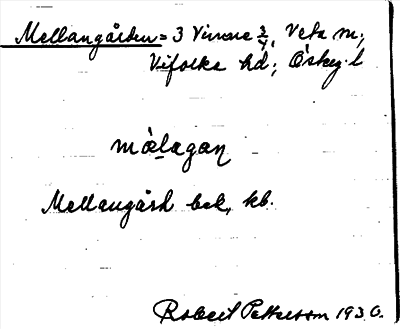 Mellangården = 3 Vinne 3/4, Veta sn;
Vifolka hd; Östeg. l
mälagaɳ
Mellangård bel, kb.
Robert Pettersson 1930.